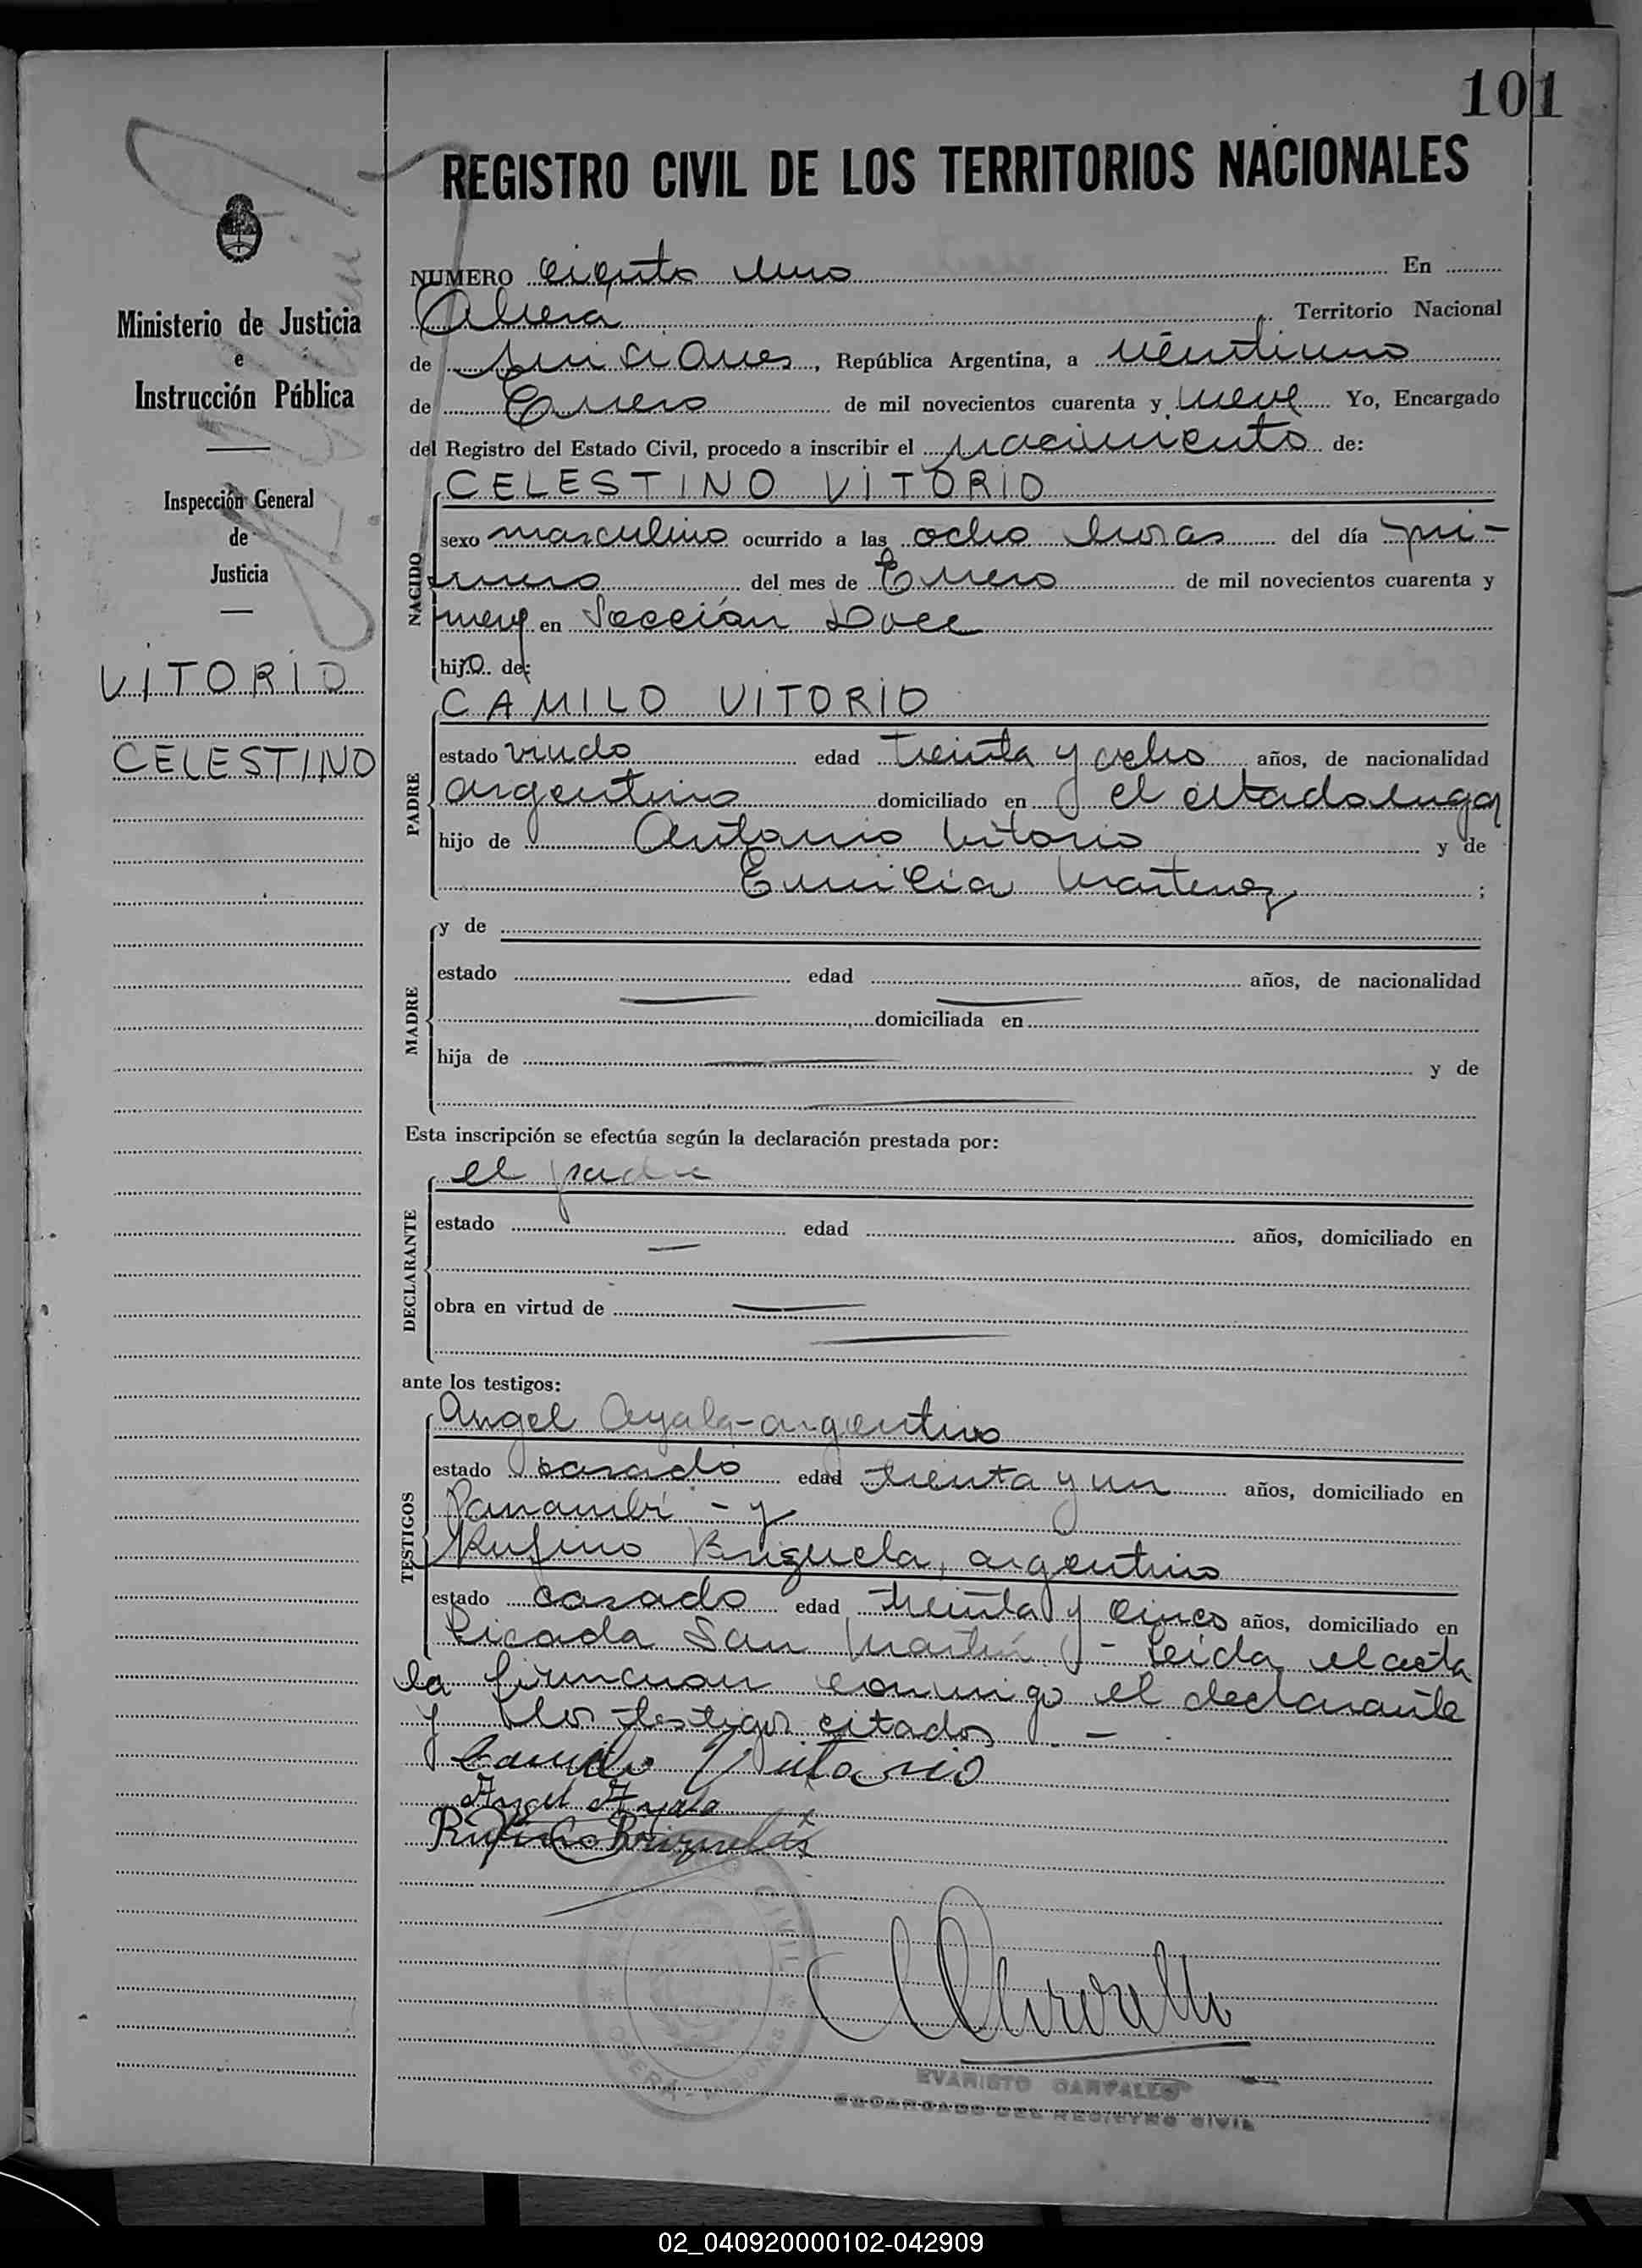 101
REGISTRO CIVIL DE LOS TERRITORIOS NACIONALES
Ministerio de Justicia
e
Instrucción Pública
Inspección General
de
Justicia
VITORIO
CELESTINO
NUMERO ciento uno En
Obera Territorio Nacional
de Misiones, República Argentina, a veintiuno
de Enero de mil novecientos cuarenta y nueve Yo, Encargado
del Registro del Estado Civil, procedo a inscribir el nacimiento de:
NACIDO
CELESTINO VITORIO
sexo masculino ocurrido a las ocho horas del día pri-
mero del mes de Enero de mil novecientos cuarenta y
nueve en Sección Doce
hijo de:
PADRE
CAMILO VITORIO
estado viudo edad treinta y ocho años, de nacionalidad
argentino domiciliado en el citado lugar
hijo de Antonio Vitorio y de
Emilia Martinez ;
MADRE
y de
estado edad años, de nacionalidad
domiciliada en
hija de y de
Esta inscripción se efectúa según la declaración prestada por:
DECLARANTE
el padre
estado edad años, domiciliado en
obra en virtud de
ante los testigos:
TESTIGOS
Angel Ayala - argentino
estado casado edad treinta y un años, domiciliado en
Panambí - y
Rufino Brizuela, argentino
estado casado edad treinta y cinco años, domiciliado en
Picada San Martín - Leída el acta
la firmaron conmigo el declarante
y los testigos citados. -
Camilo Vitorio
Angel Ayala
Rufino Brizuela
CIVIL
OBERA - MISIONES
EVARISTO CARVALLO
ENCARGADO DEL REGISTRO CIVIL
02_040920000102-042909